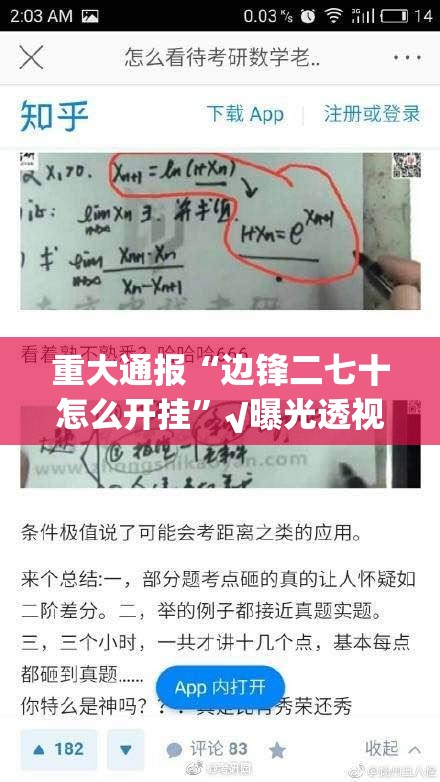 2:03 AM 0.03 K/s 14
怎么看待考研数学老..
知乎 下载 App 注册或登录
X₁>0. Xn+1=ln(1+Xn)
lim Xn ヨ. 并求值.
1+Xn=e^Xn+1
lim Xn+1-Xn / Xn-Xn+1
重大通报“边锋二七十
怎么开挂”√曝光透视
www.zhongshikaoyan.com
条件极值说了可能会考距离之类的应用。
来个总结:一，部分题考点砸的真的让人怀疑如
二阶差分。二，举的例子都接近真题实题。
三，三个小时，一共才讲十几个点，基本每点
都砸到真题......
App 内打开
你特么是神吗？
秀荣还秀
182 评论 83 收起